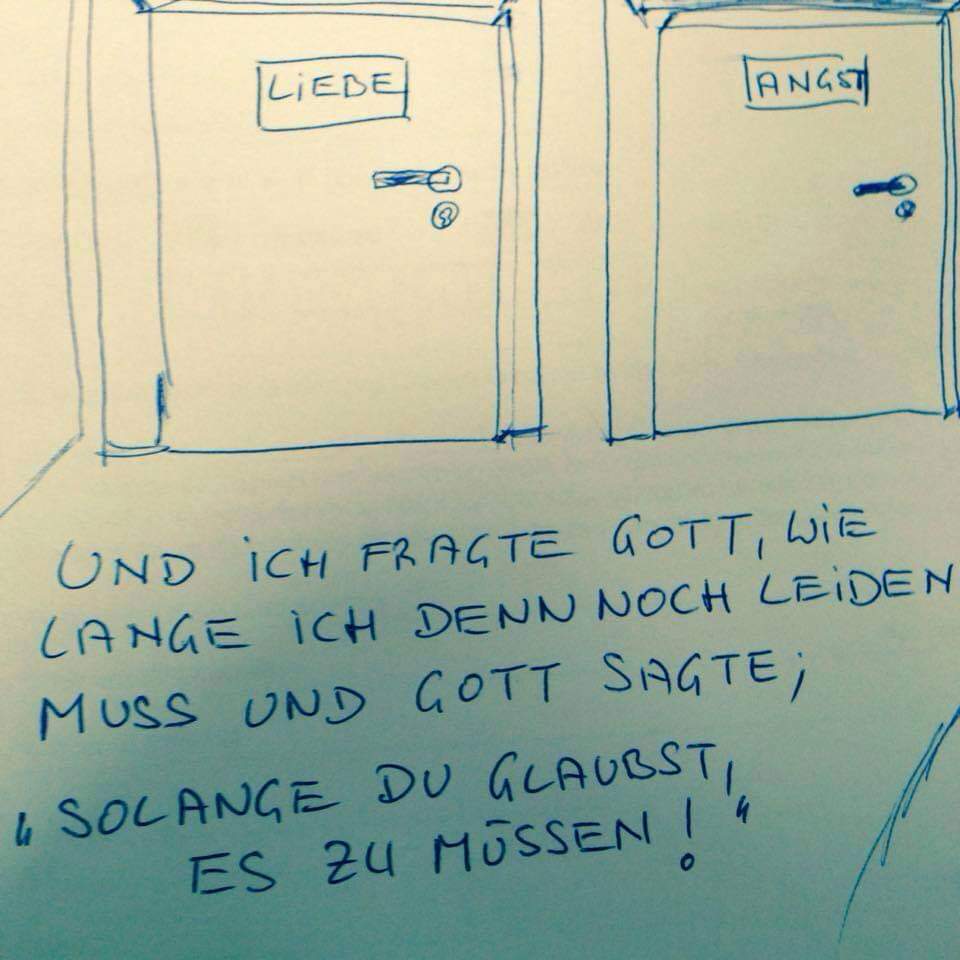 LIEBE
ANGST
UND ICH FRAGTE GOTT, WIE
LANGE ICH DENN NOCH LEIDEN
MUSS UND GOTT SAGTE;
„SOLANGE DU GLAUBST,
ES ZU MÜSSEN! “